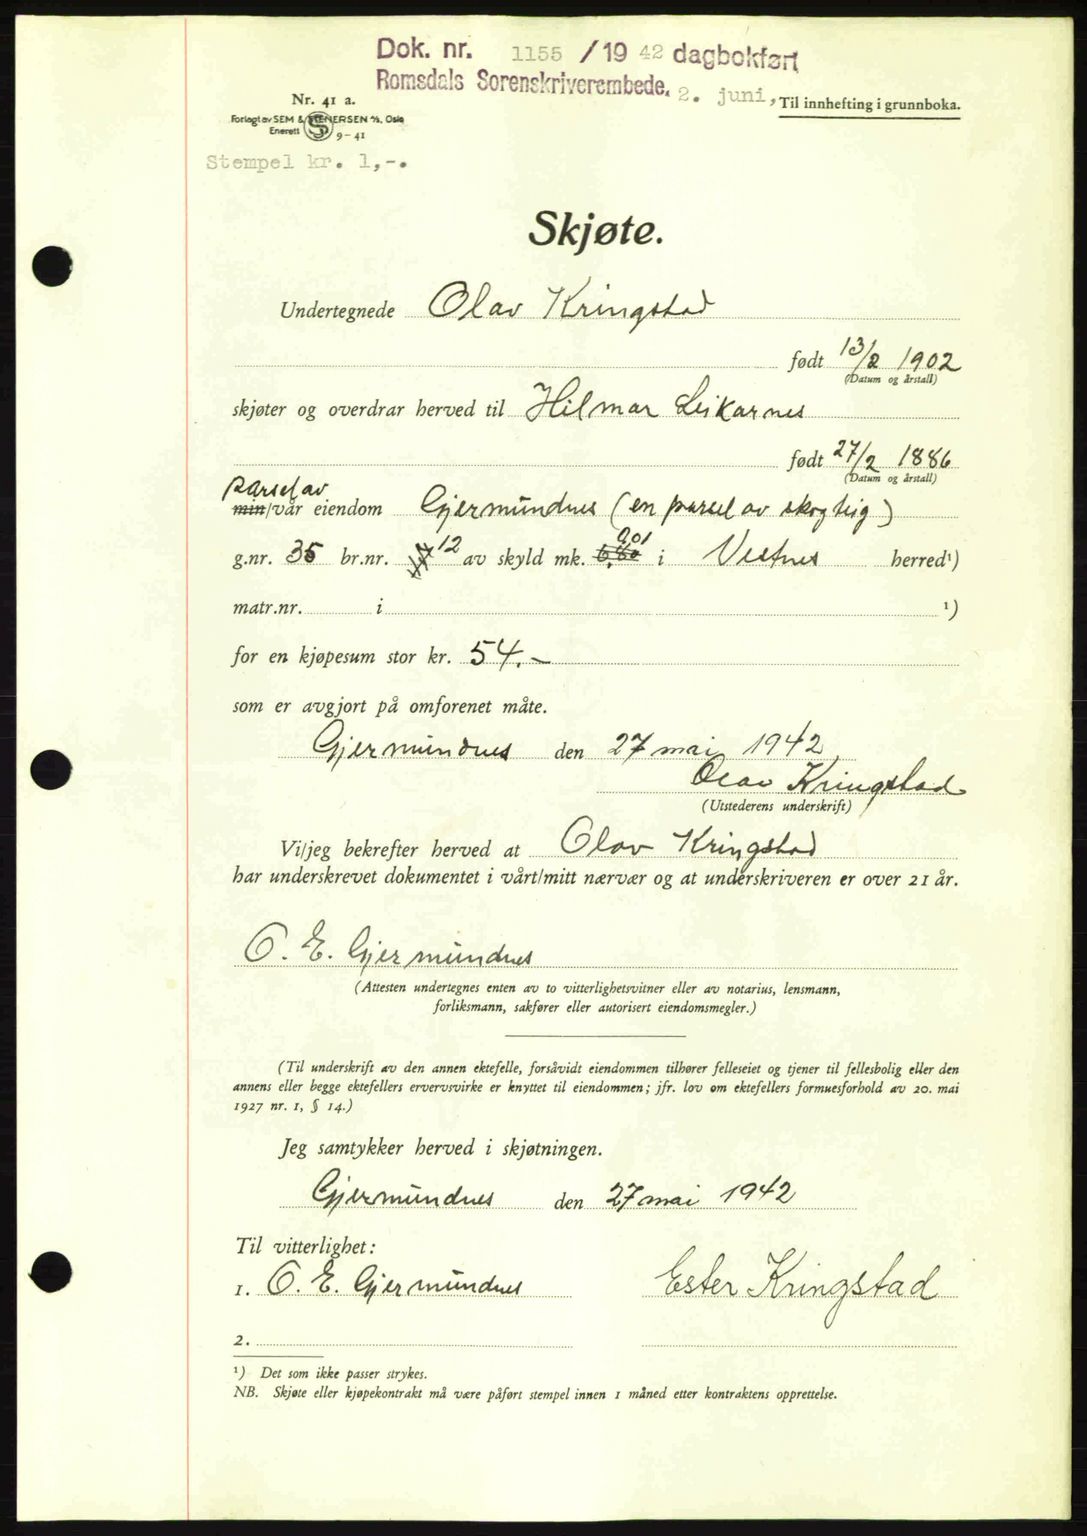 Dok. nr. 1155 / 1942 dagbokført
Romsdals Sorenskriverembede. 2. juni,
Til innhefting i grunnboka.
Nr. 41 a.
Forlagt av SEM & STENERSEN A/S, Oslo
Enerett 9-41
Stempel kr. 1,-.
Skjøte.
Undertegnede Olav Kringstad
født 13/2 1902
(Datum og årstall)
skjøter og overdrar herved til Hilmar Leikarnes
født 27/2 1886
(Datum og årstall)
parsel av
min/vår eiendom Gjermundnes (en parsel av skogteig)
0,01
g.nr. 35 br.nr. 12 av skyld mk. 6,80 i Vestnes herred¹)
matr.nr. i ¹)
for en kjøpesum stor kr. 54.-
som er avgjort på omforenet måte.
Gjermundnes den 27 mai 1942
Olav Kringstad
(Utstederens underskrift)
Vi/jeg bekrefter herved at Olav Kringstad
har underskrevet dokumentet i vårt/mitt nærvær og at underskriveren er over 21 år.
O. E. Gjermundnes
(Attesten undertegnes enten av to vitterlighetsvitner eller av notarius, lensmann,
forliksmann, sakfører eller autorisert eiendomsmegler.)
(Til underskrift av den annen ektefelle, forsåvidt eiendommen tilhører felleseiet og tjener til fellesbolig eller den
annens eller begge ektefellers ervervsvirke er knyttet til eiendommen; jfr. lov om ektefellers formuesforhold av 20. mai
1927 nr. 1, § 14.)
Jeg samtykker herved i skjøtningen.
Gjermundnes den 27 mai 1942
Til vitterlighet:
1. O. E. Gjermundnes Ester Kringstad
2.
¹) Det som ikke passer strykes.
NB. Skjøte eller kjøpekontrakt må være påført stempel innen 1 måned etter kontraktens opprettelse.